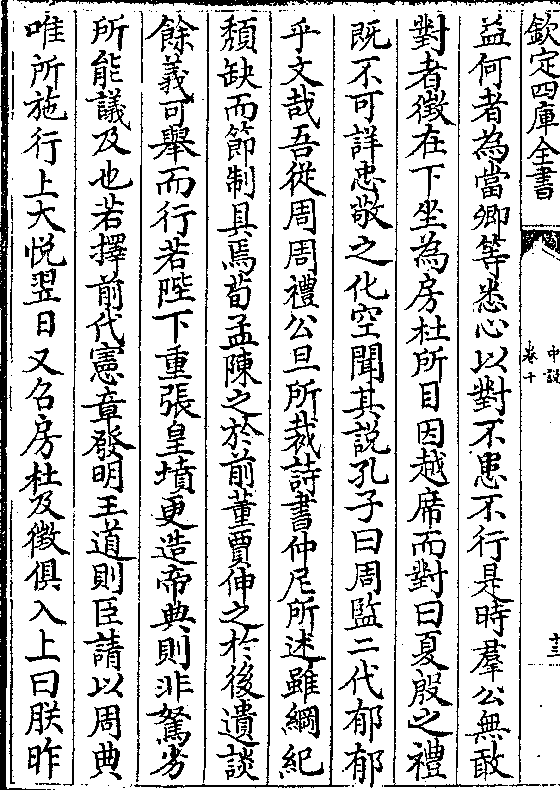 欽定四庫全書
中說
卷十
十三
益何者為當卿等悉心以對不患不行是時羣公無敢
對者徴在下坐為房杜所目因越席而對曰夏殷之禮
既不可詳忠敬之化空聞其説孔子曰周監二代郁郁
乎文哉吾從周周禮公旦所裁詩書仲尼所述雖綱紀
頽缺而節制具焉荀孟陳之於前董賈伸之於後遺談
餘義可舉而行若陛下重張皇墳更造帝典則非駑劣
所能議及也若擇前代憲章發明王道則臣請以周典
唯所施行上大悦翌日又召房杜及徴俱入上曰朕昨